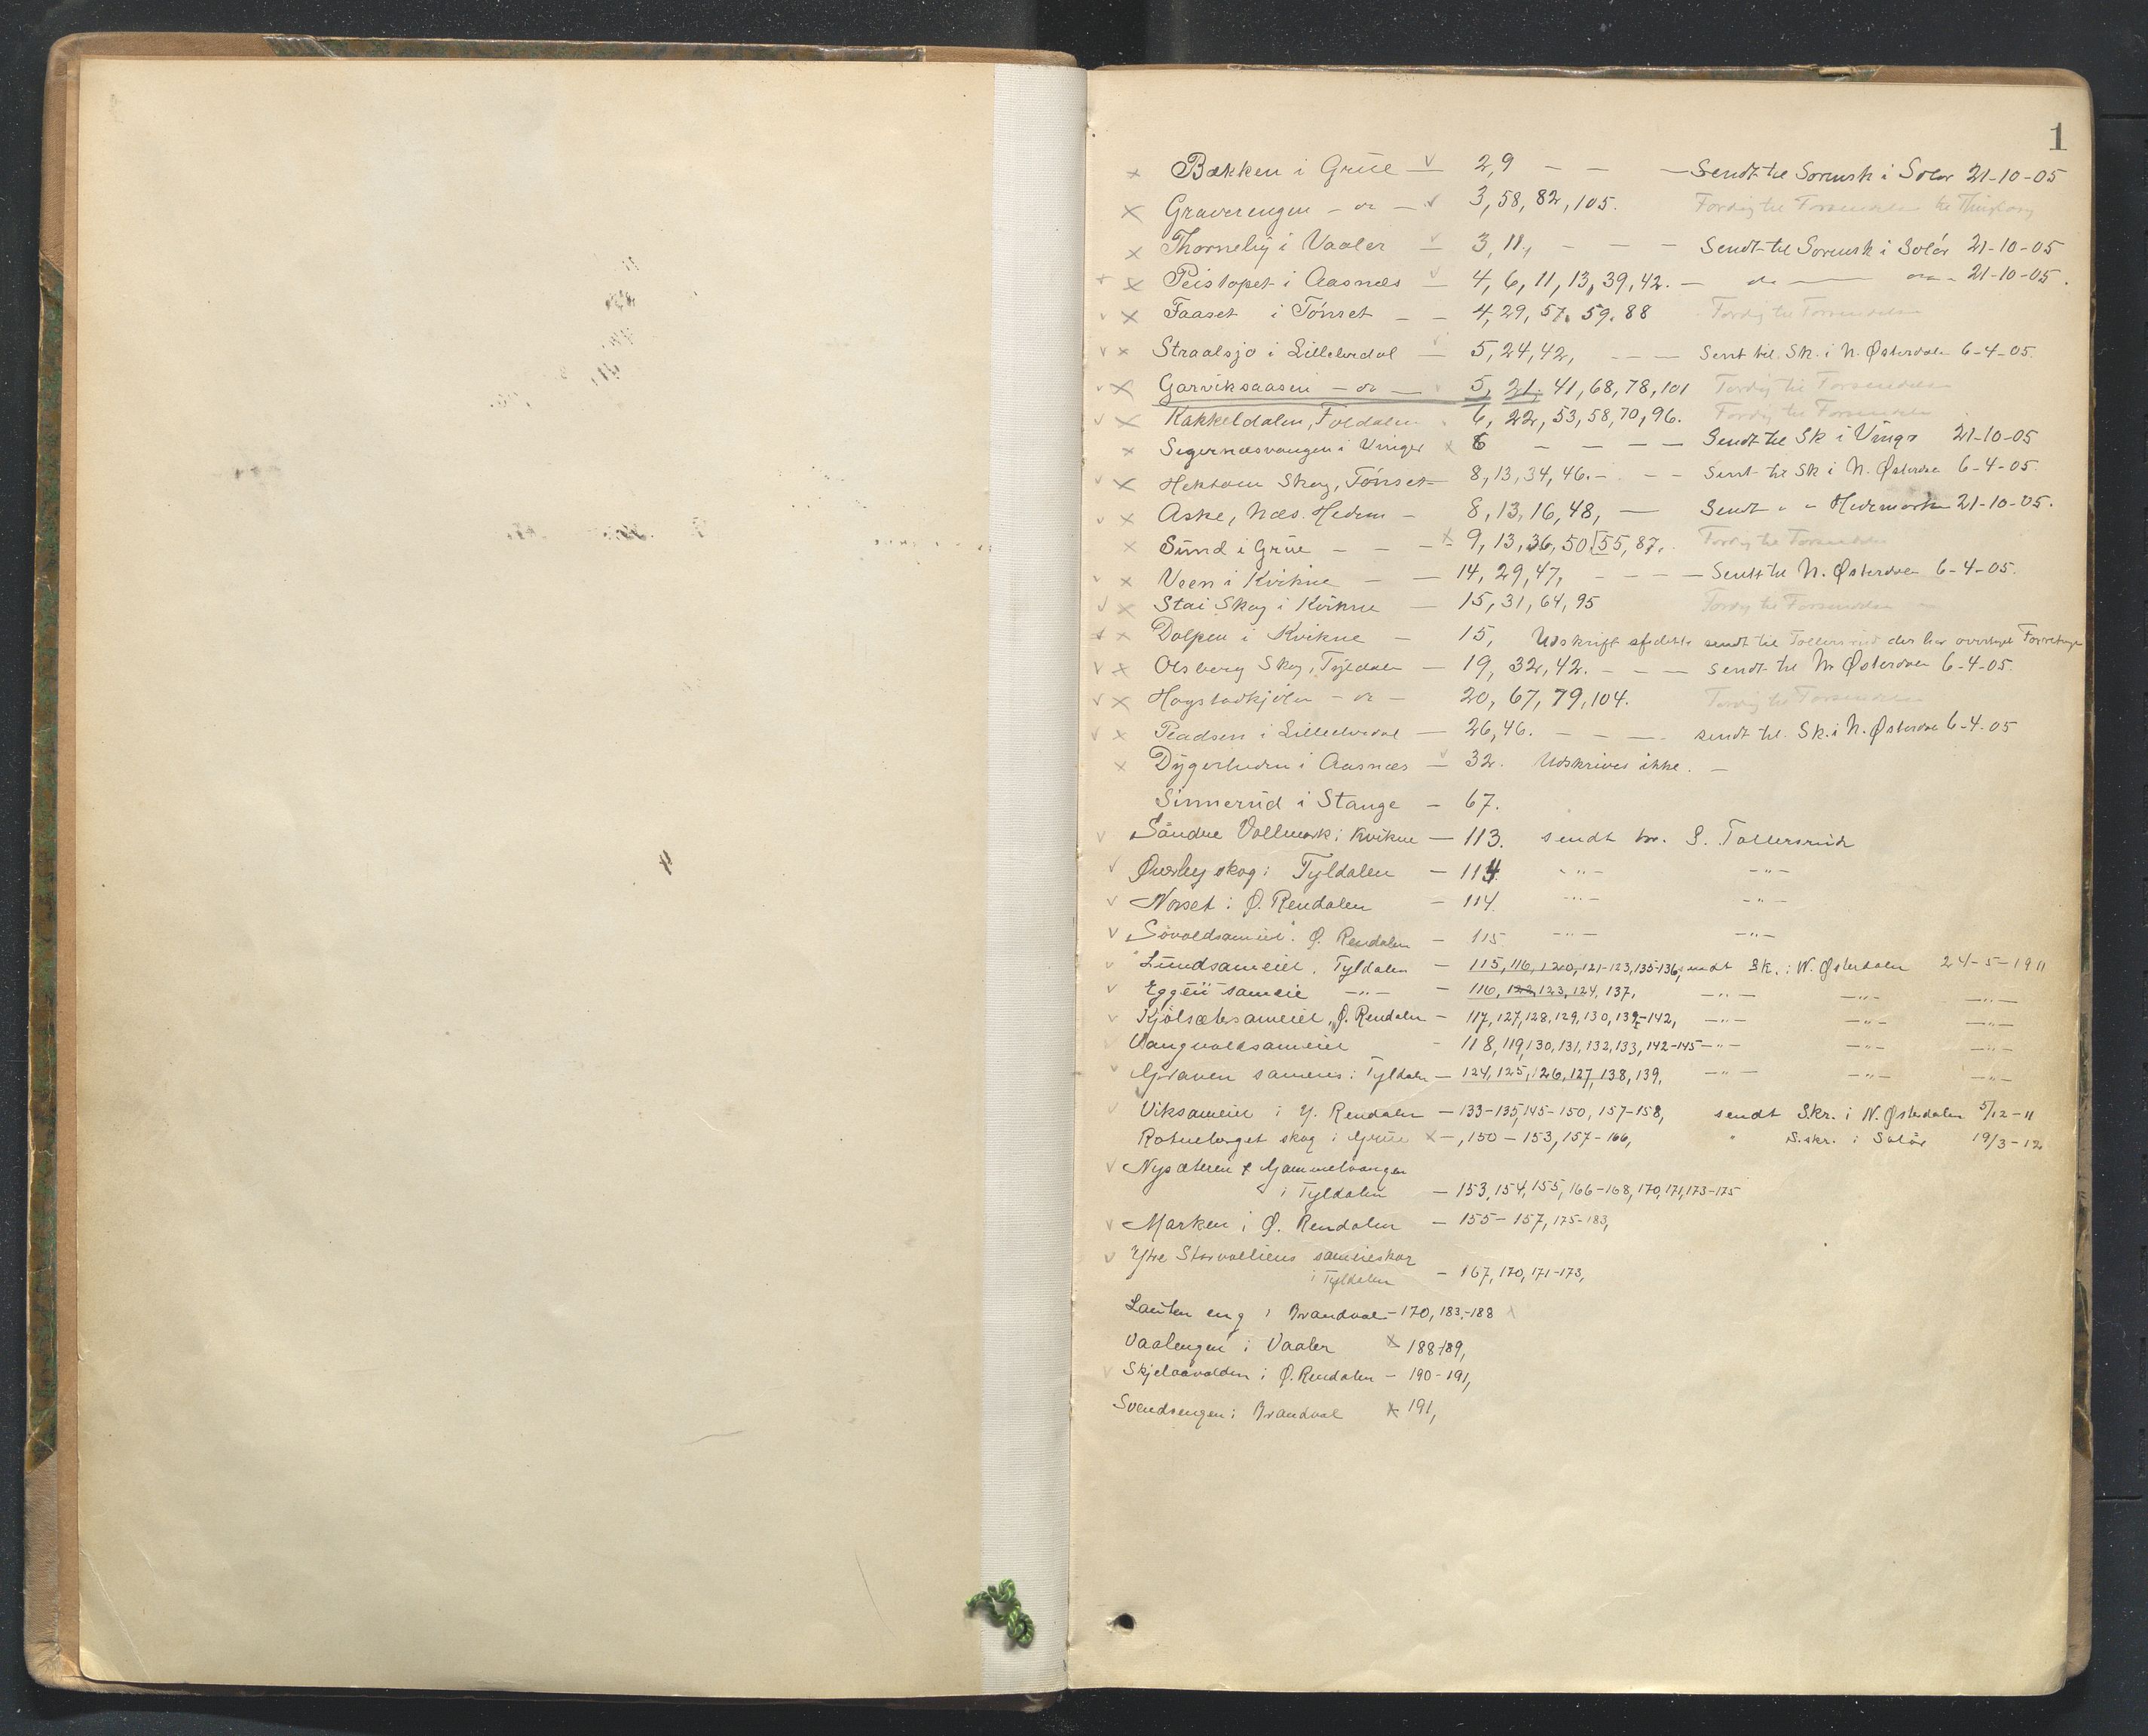 1
× Bækken i Grue — v 2,9 — — — Sendt til Sorensk i Solør 21-10-05
× Graverengen — do — v 3, 58, 82, 105. Færdig til Forsendelse til Thinglæsg
× Thorneby i Vaaler — v 3, 11, — — — Sendt til Sorensk i Solør 21-10-05
× Peistopet i Aasnæs — v 4, 6, 11, 13, 39, 42. — do — 21-10-05.
v × Faaset i Tønset — — 4, 29, 57, 59, 88 Færdig til Forsendelse
v × Straalsjo i Lilleelvedal — 5, 24, 42, — — — Sent til Sk. i N. Østerdalen 6-4-05.
v × Garviksaasen — do — 5, 21, 41, 68, 78, 101 Færdig til Forsendelse
v × Kakkeldalen, Foldalen 6, 22, 53, 58, 70, 96. Færdig til Forsendelse
× Segernæsvangen i Vinger × 6 — — — — Sendt til Sk i Vinger 21-10-05
v × Skog, Tønset — 8, 13, 34, 46. — — — Sent til Sk i N. Østerdalen 6-4-05.
v × Aske, Næs. Hedem — 8, 13, 16, 48, — Sendt " " Hedemarken 21-10-05.
× Sund i Grue — — — × 9, 13, 36, 50, 55, 87, Færdig til Forsendelse
v × Voen i Kvikne — — 14, 29, 47, — — — — Sendt til N. Østerdalen 6-4-05.
v × Stai Skog i Kvikne — 15, 31, 64, 95 Færdig til Forsendelse
× Dolpen i Kvikne — 15, Udskrift af dette sendt til Tollersrud der har overtaget Forretninge
v × Olsberg Skog, Tyldalen — 19, 32, 42. — — — sendt til N Østerdalen 6-4-05.
v × Hogstadkjølen — do — 20, 67, 79, 104. Færdig til Forsendelse
v × i Lilleelvedal — 26, 46. — — — sendt til Sk. i N. Østerdal 6-4-05
× i Aasnæs — v 32. Udskrives ikke. —
Sinnerud i Stange — 67.
v Søndre Vollmark i Kvikne — 113. sendt hr. S. Tollersrud
v Øverby skog i Tyldalen — 114. — " — — " —
v Norset i Ø. Rendalen — 114. — " — — " —
v "Sovoldsameiet". Ø. Rendalen — 115 — " — — " —
v "Lundsameiet. Tyldalen — 115, 116, 120, 121-123, 135-136, sendt Sk. i N. Østerdalen 24-5-1911
v Eggen sameie — " — — 116, 122, 123, 124, 137, — " — — " — — " —
v Kjølsætersameiet, Ø. Rendalen — 117, 127, 128, 129, 130, 139-142, — " — — " — — " —
Vangvoldsameiet — 118, 119, 130, 131, 132, 133, 142-145 — " — — " — — " —
v Graven sameie i Tyldalen — 124, 125, 126, 127, 138, 139, — " — — " — — " —
v Viksameiet i Y. Rendalen — 133-135, 145-150, 157-158, sendt Skr. i N. Østerdalen 5/12-11
Rotneberget skog i Grue × —, 150 — 153, 157-166, " S.skr. i Solør 19/3-12
v Nysæteren & Gammelvangen
i Tyldalen — 153, 154, 155, 166-168, 170, 171, 173-175
v Marken i Ø. Rendalen — 155 — 157, 175-183,
v Ytre Storvolliens sameieskog
i Tyldalen — 167, 170, 171-173,
Lauten eng i Brandval — 170, 183-188
Vaalengen i Vaaler × 188-189,
v Skjelaavolden i Ø. Rendalen — 190-191,
Svendsengen i Brandval × 191,